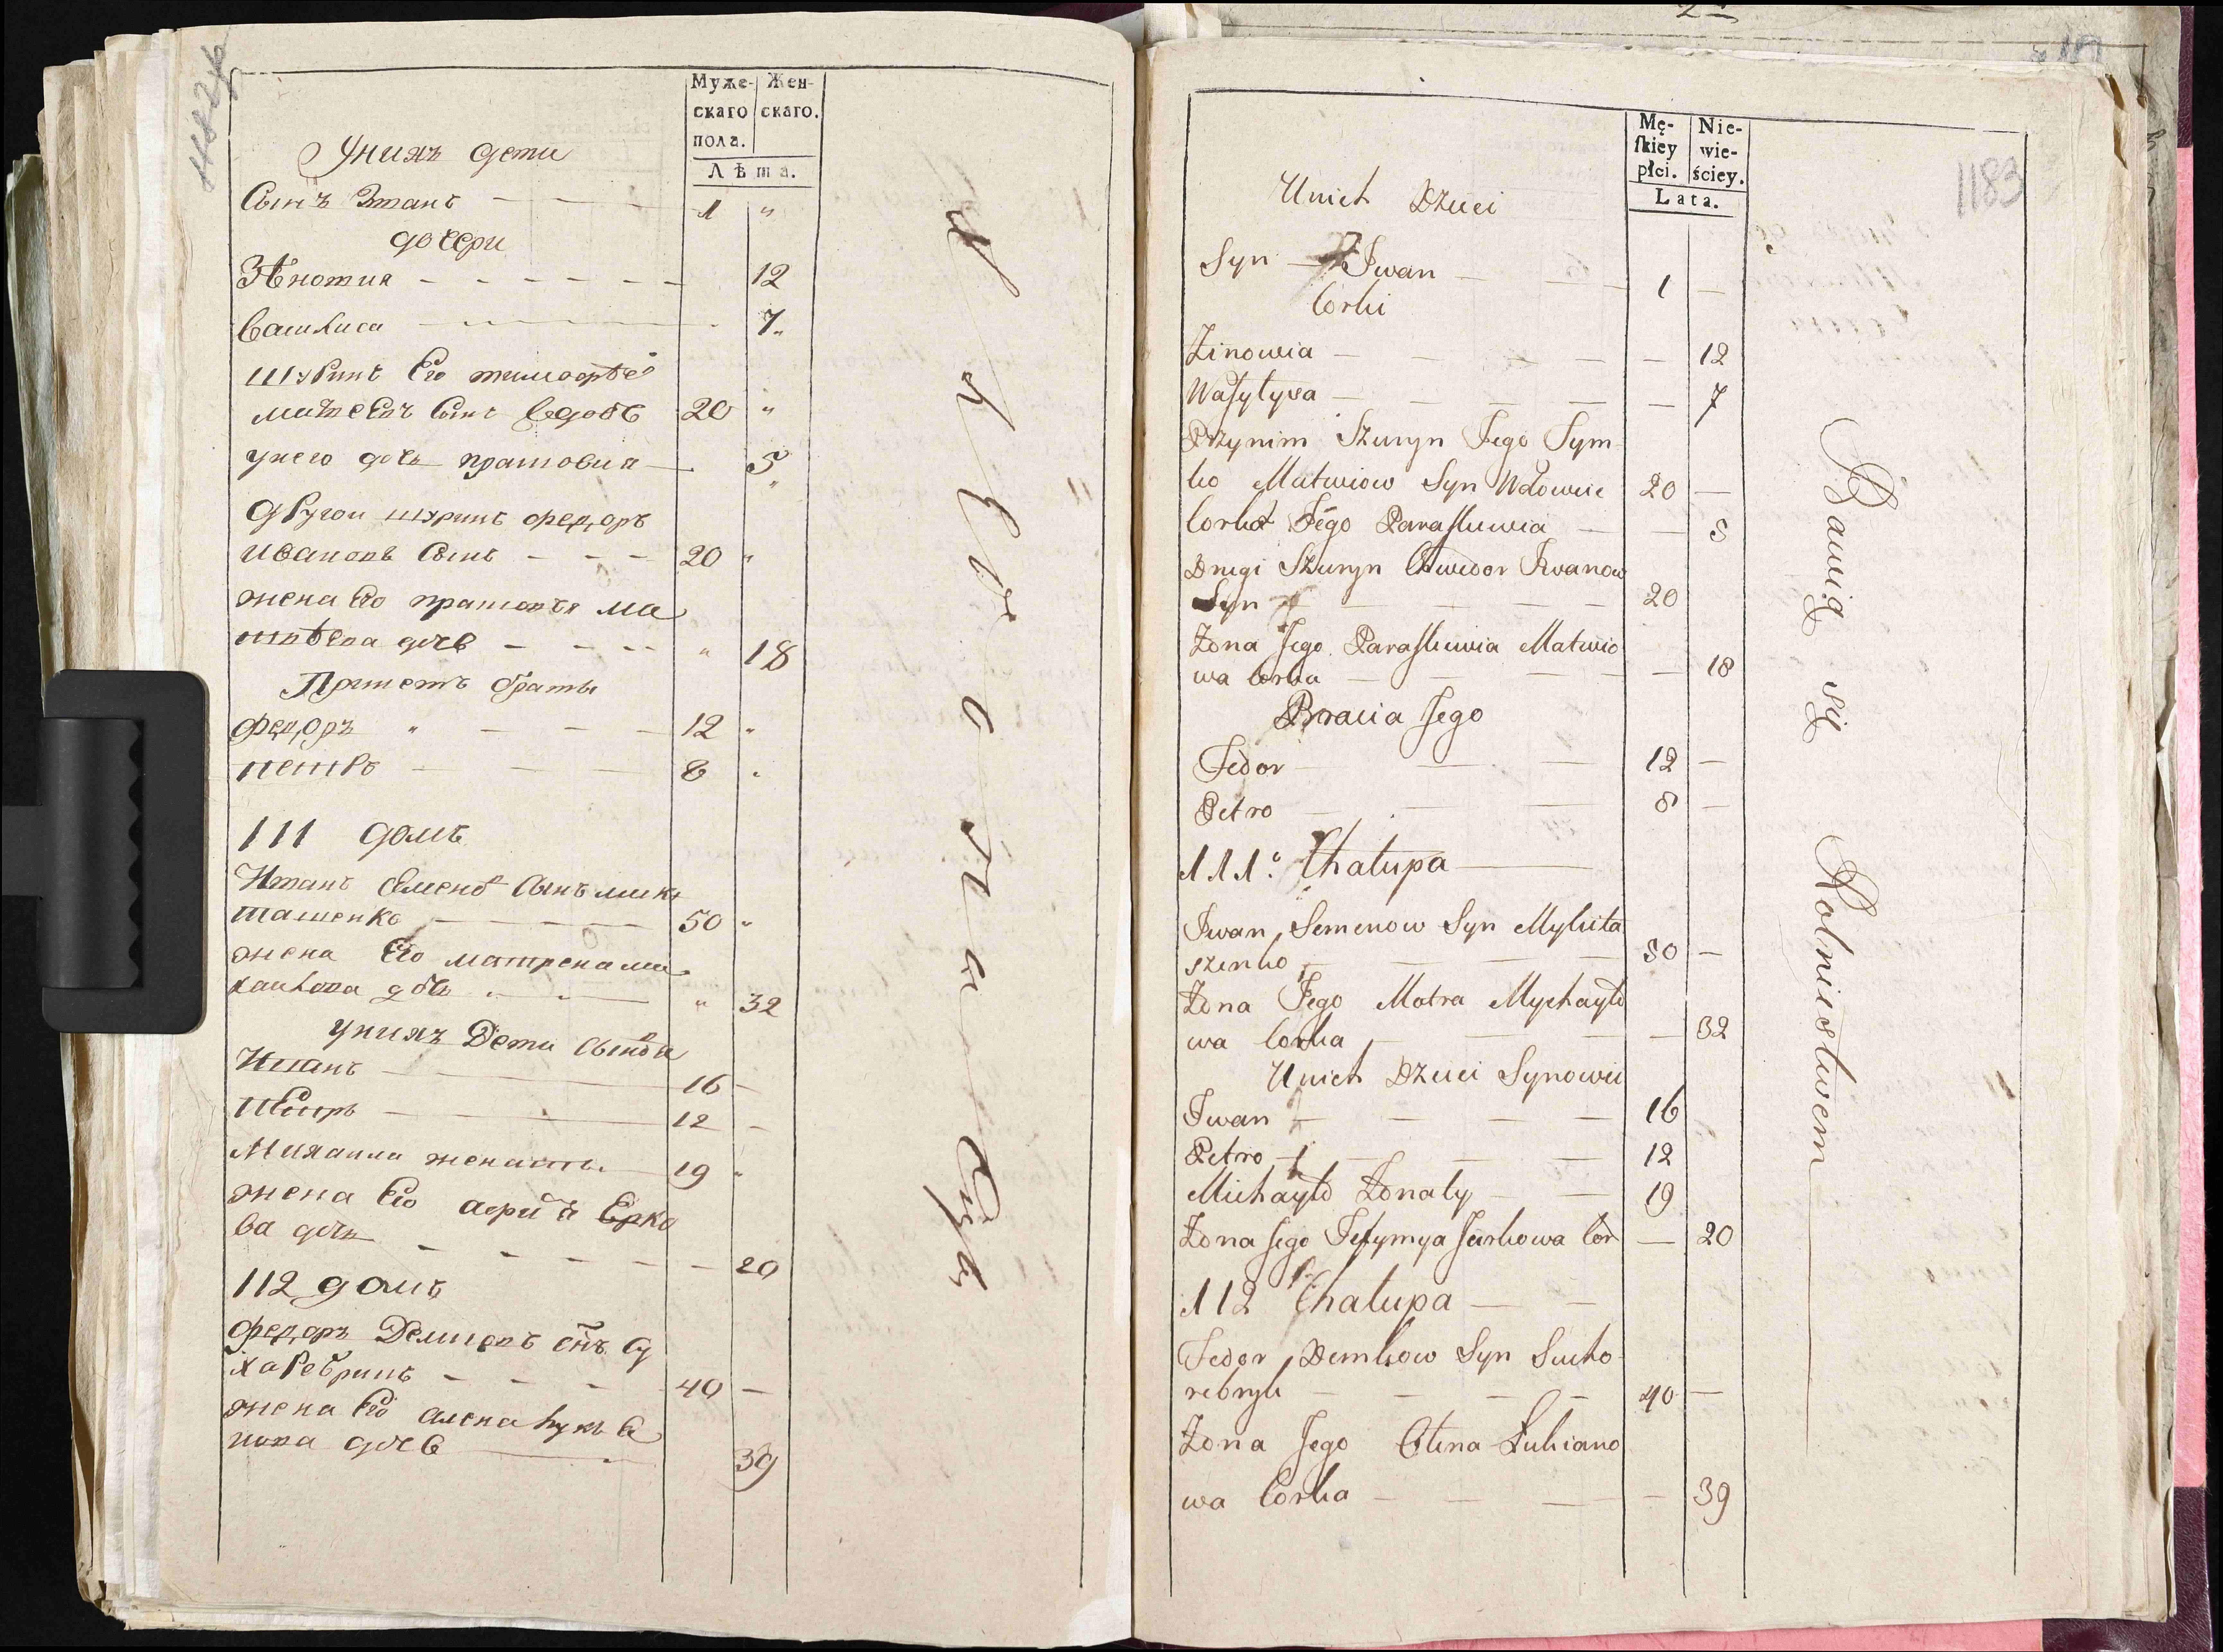 Муже- Жен-
скаго скаго.
пола.
Лѣта.
1182
Унихъ дети
Сынъ Іванъ — — 1 "
дочери
Зѣновия — — — 12
Василиса — — 7 "
шуринъ Его тимофѣй
матвеевъ Сынъ Вдовъ 20 "
унего дочь прасковия — 5
другои шуринъ федоръ
Ивановъ Сынъ — — — 20 "
жена Его прасковья ма
твѣева дочь — — — " 18
браты
федоръ " — — — 12 "
петръ — — — 8 "
111 домъ
Иванъ Семеновъ Сынъ мики
ташенко — 50 "
жена Его матрена ми
хаилова дочь " — " 32
унихъ Дети Сыновя
Иванъ — 16 —
петръ — 12 —
Михаила женаты — 19 "
жена Его Ерко
ва дочь — — — — 20
112 домъ
федоръ Демковъ снъ Су
харебрикъ — — — 40 —
жена Его алена лукья
нова дочь — 39
Мę-
ſkiey
płci.
Nie-
wie-
ściey.
Lata.
1183
Unich Dzieci
Syn — Iwan — — 1 —
Corki
Zinowia — — — — — 12
Wasylysa — — — — — 7
Przynim Szuryn Jego Tym-
ko Matwiow Syn Wdowiec 20 —
Corka Jego Paraskiewia — — 5
Drugi Szuryn Chwedor Iwanow
Syn — — — — 20
Żona Jego Paraskiewia Matwio
wa Corka — — — — — 18
Bracia Jego
Fedor — — — 12 —
Petro — — — 8 —
111. Chałupa —
Iwan Semenow Syn Mykita
szenko — — — — 50 —
Żona Jego Motra Mychayło
wa Corka — — — — 32
Unich Dzieci Synowie
Iwan — — — — 16
Petro — — — — 12
Michayło Żonaty — — 19
Żona Jego Jefymya Jarkowa Cor — 20
112 Chałupa — —
Fedor Demkow Syn Sucho-
rebryk — — — — 40 —
Żona Jego Ołena Łukiano
wa Corka — — — — 39
Bawią się Rolnictwem